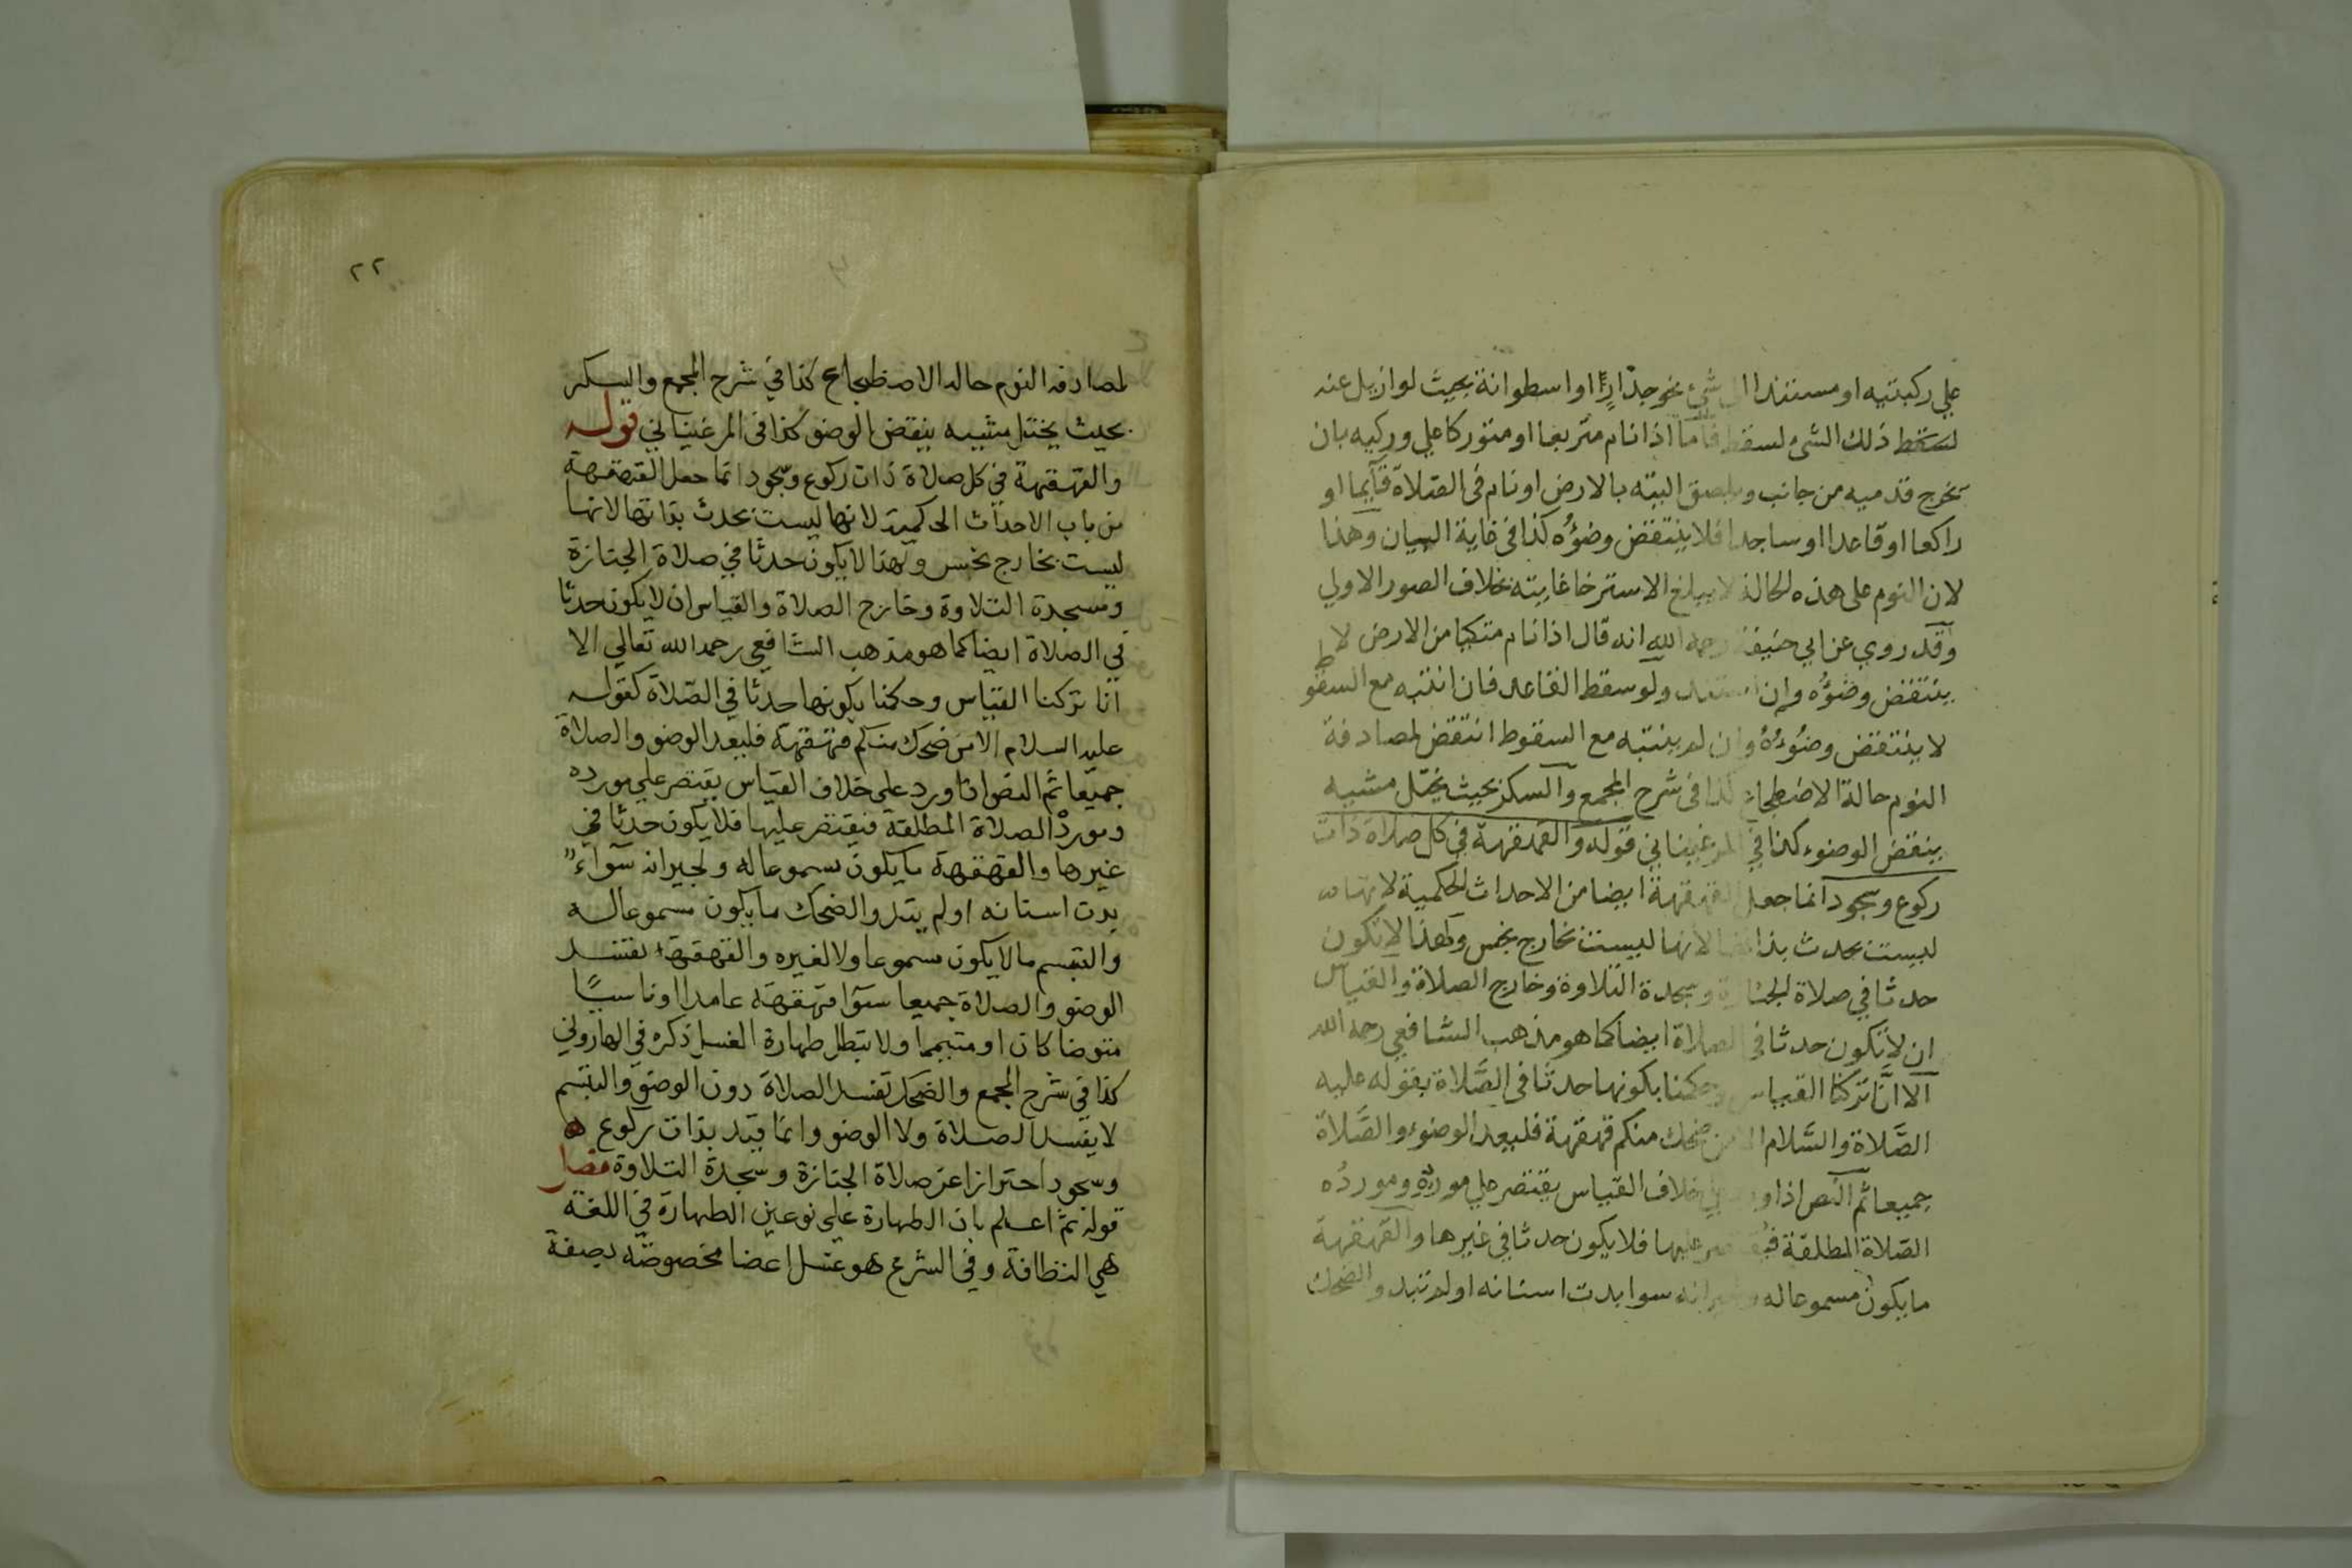 علي ركبتيه او مستندا الي شيء نحو جدار او اسطوانة بحيث لو ازيل عنه
لسقط ذلك الشيء لسقط فاما اذا نام متربعا او متوركا علي وركيه بان
يخرج قدميه من جانب ويلصق اليته بالارض او نام في الصلاة قآيما او
راكعا او قاعدا او ساجدا فلا ينتقض وضؤه كذا في غاية البيان وهذا
لان النوم على هذه الحالة لا يبلغ الاسترخا غايته بخلاف الصور الاولي
وقد روي عن ابي حنيفة رحمه الله انه قال اذا نام متكيا من الارض لا
ينتقض وضؤه وان استند ولو سقط القاعد فان انتبه مع السقوط
لا ينتقض وضوءه وان لم ينتبه مع السقوط انتقض لمصادفة
النوم حالة الاضطجاع كذا في شرح المجمع والسكر بحيث يختل مشيه
ينقض الوضوء كذا في المرغيناني قوله والقهقهة في كل صلاة ذات
ركوع وسجود انما جعل القهقهة ايضا من الاحداث الحكمية لانها
ليست بحدث بذاتها لانها ليست بخارج نجس ولهذا لا تكون
حدثا في صلاة الجنازة وسجدة التلاوة وخارج الصلاة والقياس
ان لا تكون حدثا في الصلاة ايضا كما هو مذهب الشافعي رحمه الله
الا انا تركنا القياس وحكمنا بكونها حدثا في الصلاة بقوله عليه
الصلاة والسلام الا من ضحك منكم قهقهة فليعد الوضوء والصلاة
جميعا ثم النص اذا ورد علي خلاف القياس يقتصر علي مورده ومورده
الصلاة المطلقة فيقتصر عليها فلا يكون حدثا في غيرها والقهقهة
ما يكون مسموعا له ولجيرانه سوا بدت اسنانه او لم تبد والضحك
٢٢
لمصادفه النوم حاله الاضطجاع كذا في شرح المجمع والسكر
بحيث يختل مشيه ينقض الوضو كذا في المرغيناني قوله
والقهقهة في كل صلاة ذات ركوع وسجود انما جعل القهقهة
من باب الاحداث الحكمية لانها ليست بحدث بذاتها لانها
ليست بخارج نجس ولهذا لا يكون حدثا في صلاة الجنازة
وسجدة التلاوة وخارج الصلاة والقياس ان لا يكون حدثا
في الصلاة ايضا كما هو مذهب الشافعي رحمه الله تعالي الا
انا تركنا القياس وحكمنا بكونها حدثا في الصلاة كقوله
عليه السلام الا من ضحك منكم قهقهة فليعد الوضو والصلاة
جميعا ثم النص اذا ورد علي خلاف القياس يقتصر علي مورده
ومورد الصلاة المطلقة فيقتصر عليها فلا يكون حدثا في
غيرها والقهقهة ما يكون مسموعا له ولجيرانه سواء
بدت اسنانه او لم يبد والضحك ما يكون مسموعا له
والتبسم ما لا يكون مسموعا ولا لغيره والقهقهة تفسد
الوضو والصلاة جميعا سوا قهقهة عامدا او ناسيا
متوضا كان او متيمما ولا تبطل طهارة الغسل ذكره في الهاروني
كذا في شرح المجمع والضحك تفسد الصلاة دون الوضو والتبسم
لا يفسد الصلاة ولا الوضو وانما قيد بذات ركوع
وسجود احترازا عن صلاة الجنازة وسجدة التلاوة فصل
قوله ثم اعلم بان الطهارة على نوعين الطهارة في اللغة
هي النظافة وفي الشرع هو غسل اعضا مخصوصة بصفة